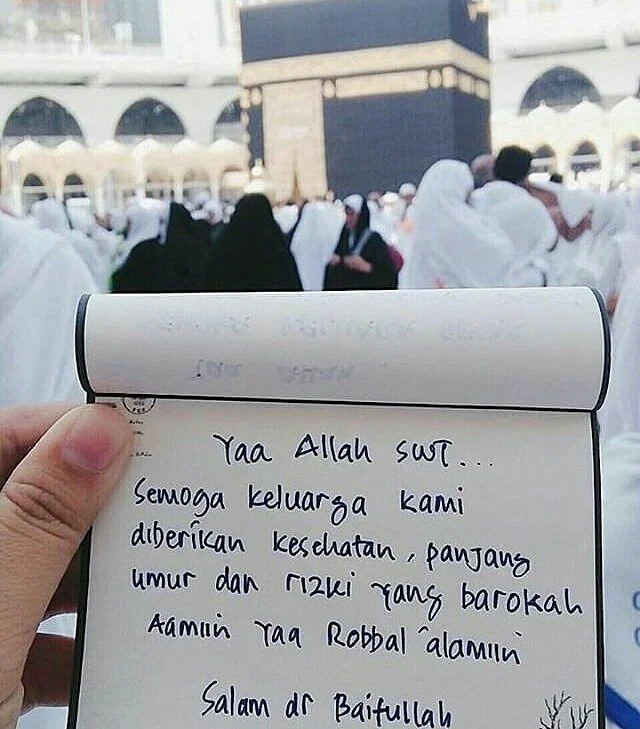 Yaa Allah SWT...
Semoga keluarga kami
diberikan kesehatan, panjang
umur dan rizki yang barokah
Aamiin Yaa Robbal 'alamiin
Salam dr Baitullah